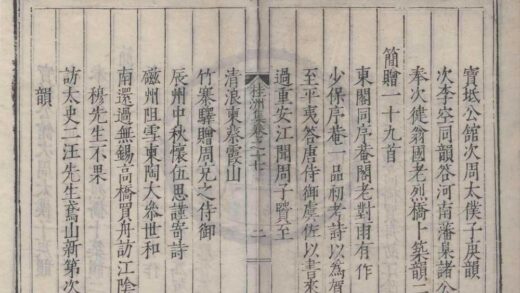 寶坻公館次周太僕子庚韻
次李空同韻答河南藩臬諸公
奉次徙翁國老烈橋上築韻二
簡贈一十九首
東閣同序菴閣老對雨有作
少保序菴一品初考詩以為賀
至平夷答唐侍御虞佐以書來
過重安江聞周子賢至
桂洲集卷之十七
二
清浪東蔡霞山
竹寨驛贈周兄之侍御
辰州中秋懷伍思謹寄詩
磁州阻雪東陶大參世和
南還過無錫高橋買舟訪江陰
穆先生不果
訪太史二汪先生鳶山新第次
韻